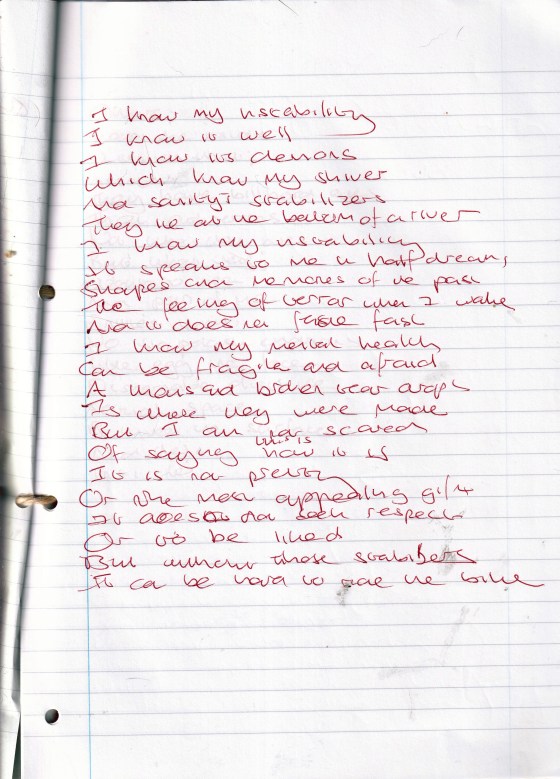 I know my instability
I know it well
I know its demons
Which know my shiver
And sanity's stabilizers
They lie at the bottom of a river
I know my instability
It speaks to me in half dreams
Shapes and memories of the past
The feeling of terror when I wake
And it does not fade fast
I know my mental health
Can be fragile and afraid
A thousand broken tear drops
Is where they were made
But I am not scared
Of saying this is how it is
It is not pretty
Or the most appealing gift
It does not seek respect
Or to be liked
But without those stabilisers
It can be hard to ride the bike